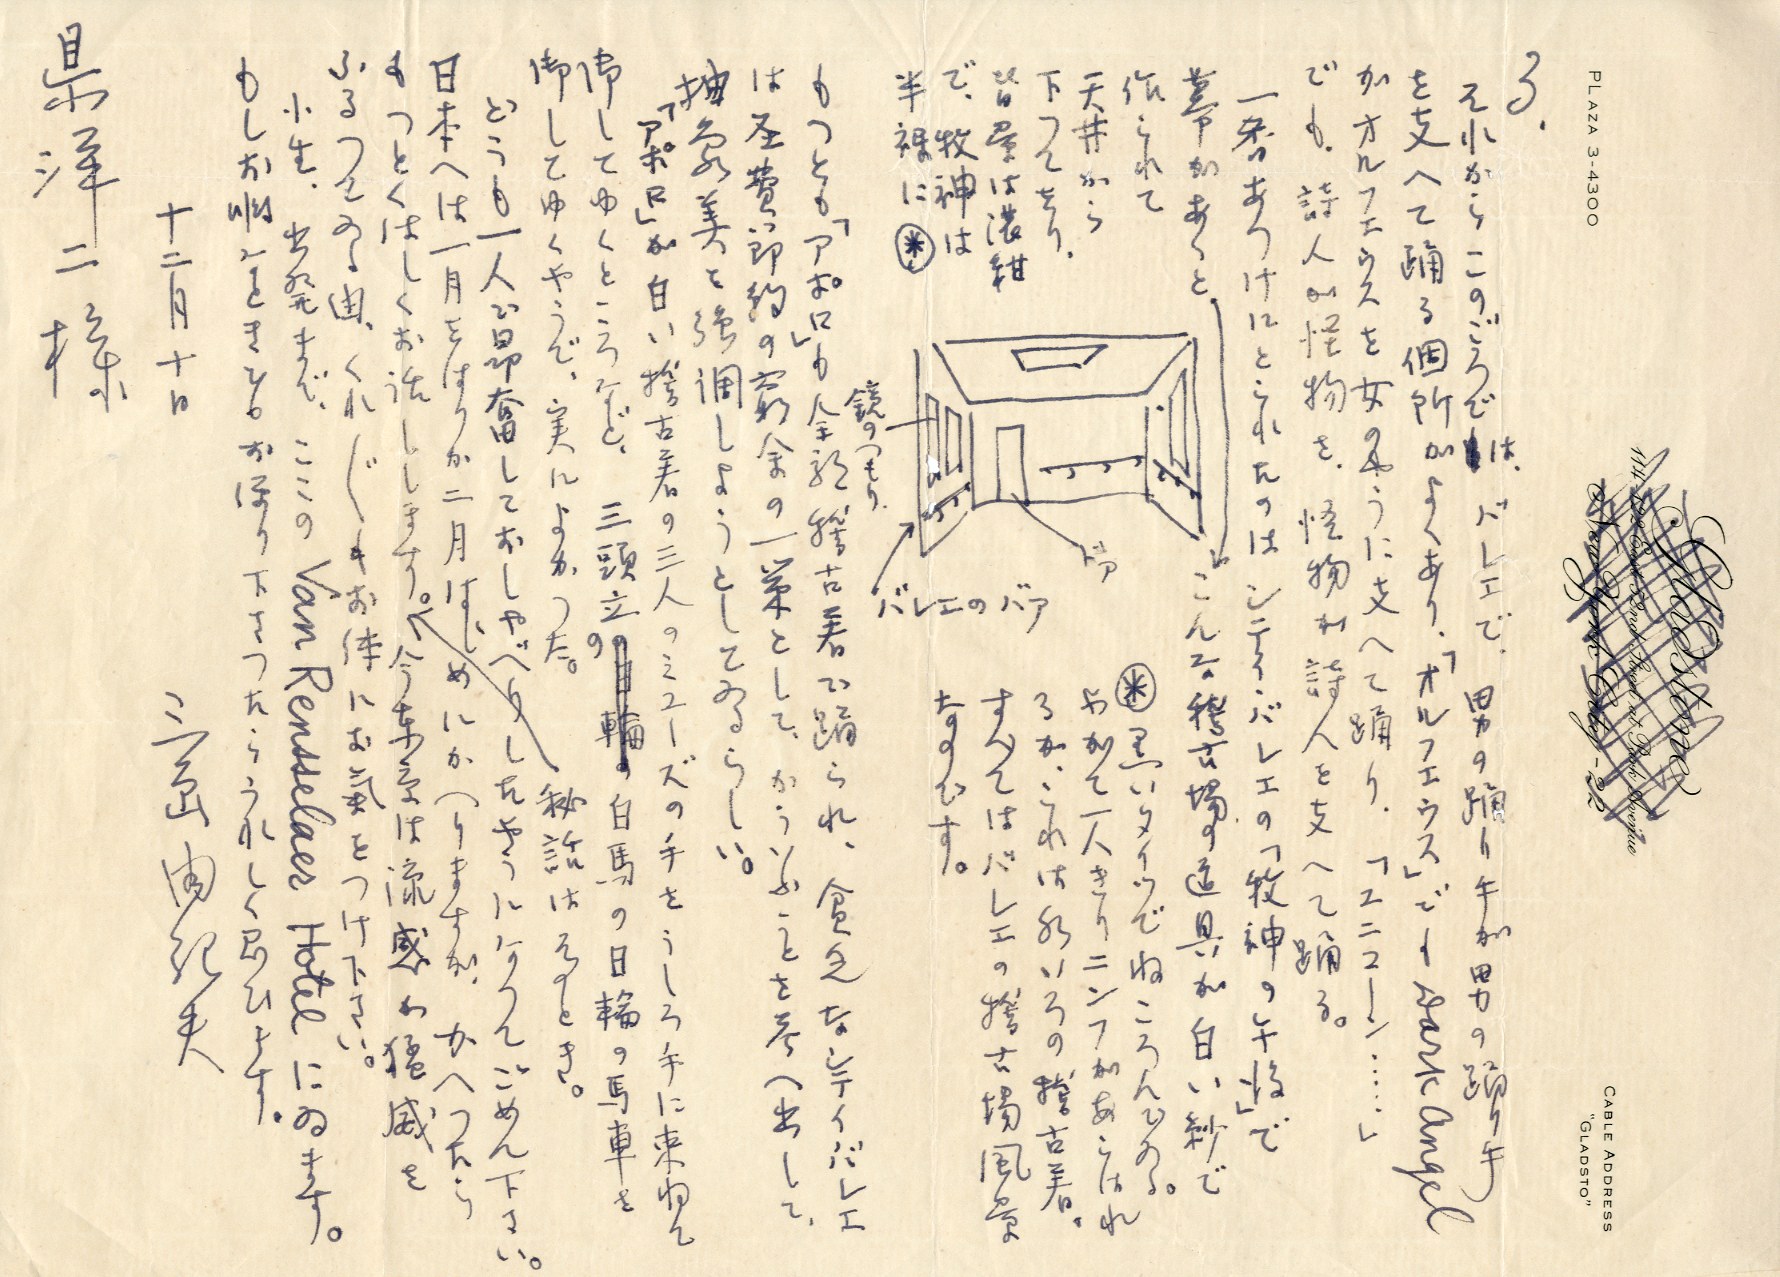 PLAZA 3-4300
Gladstone
114-122 East 52nd Street at Park Avenue
New York City-22
CABLE ADDRESS
"GLADSTO"
3.
それからこのごろでは、バレエで、男の踊り手が男の踊り手
を支へて踊る個所がよくあり、「オルフェウス」でも dark angel
がオルフェウスを女のやうに支へて踊り、「ユニコーン……」
でも、詩人が怪物を、怪物が詩人を支へて踊る。
一番あつけにとられたのはシティ・バレエの「牧神の午後」で
幕があくと、こんな稽古場の道具が白い紗で
作られて
天井から
下つてをり、
背景は濃紺
で、牧神は
半裸に ＊
鏡のつもり
ドア
バレエのバア
＊ 黒いタイツでねころんでゐる。
やがて一人きりニンフがあらはれ
るが、これは水いろの稽古着。
すべてはバレエの稽古場風景
なのです。
もつとも「アポロ」も全部稽古着で踊られ、貧乏なシティバレエ
は経費節約の窮余の一策として、かういふことを考へ出して、
抽象美を強調しようとしてゐるらしい。
「アポロ」が白い稽古着の三人のミューズの手をうしろ手に束ねて
御してゆくところなど、三頭立の白馬の日輪の馬車を
御してゆくやうで、実によかつた。
どうも一人で昂奮しておしやべりしたやうになつてごめん下さい。
秘話はそのとき。
日本へは一月をはりか二月はじめにかへりますが、かへつたら
もつとくはしくお話しします。今東京は流感が猛威を
ふるつてゐる由、くれぐれもお体にお気をつけ下さい。
小生、出発まで、ここの Van Rensselaer Hotel にゐます。
もしお暇なときでもお便り下さつたらうれしく思ひます。
十二月十日
三島由紀夫
県洋二様